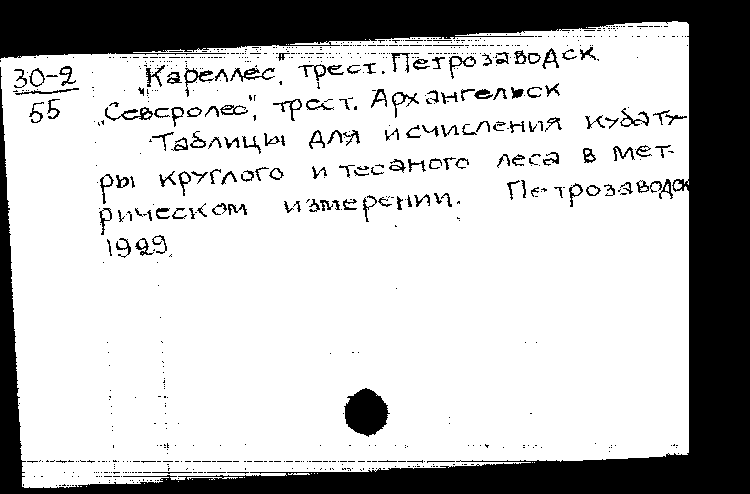 30-2
55
"Кареллес", трест. Петрозаводск.
"Северолес", трест. Архангельск
Таблицы для исчисления кубату-
ры круглого и тесаного леса в мет-
рическом измерении. Петрозаводск
1929.